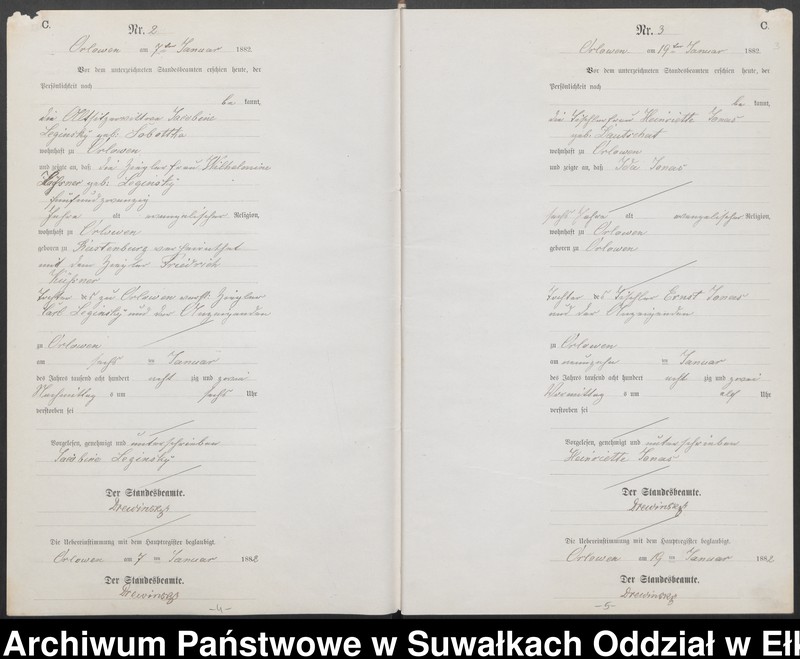 C.
Nr. 2
Orlowen am 7ten Januar 1882.
Vor dem unterzeichneten Standesbeamten erschien heute, der
Persönlichkeit nach
be kannt,
die Altsitzerwittwe Jacobine
Leginsky geb. Sobottka
wohnhaft zu Orlowen
und zeigte an, daß die Zieglerfrau Wilhelmine
geb. Leginsky
fünfundzwanzig
Jahre alt evangelischer Religion,
wohnhaft zu Orlowen
geboren zu verheirathet
mit dem Ziegler Friedrich
Tochter des zu Orlowen Ziegler
Carl Leginsky und der Anzeigenden
zu Orlowen
am sechs ten Januar
des Jahres tausend acht hundert acht zig und zwei
Nachmittag s um sechs Uhr
verstorben sei
Vorgelesen, genehmigt und unterschrieben
Jacobine Leginsky
Der Standesbeamte.
Drewinsky
Die Uebereinstimmung mit dem Hauptregister beglaubigt.
Orlowen am 7 ten Januar 1882
Der Standesbeamte.
Drewinsky
-4-
C.
Nr. 3
Orlowen am 19ten Januar 1882.
Vor dem unterzeichneten Standesbeamten erschien heute, der
Persönlichkeit nach
be kannt,
die Tischlerfrau Heinriette Jonas
geb.
wohnhaft zu Orlowen
und zeigte an, daß Ida Jonas
sechs Jahre alt evangelischer Religion,
wohnhaft zu Orlowen
geboren zu Orlowen
Tochter des Tischler Ernst Jonas
und der Anzeigenden
zu Orlowen
am neunzehn ten Januar
des Jahres tausend acht hundert acht zig und zwei
Vormittag s um elf Uhr
verstorben sei
Vorgelesen, genehmigt und unterschrieben
Heinriette Jonas
Der Standesbeamte.
Drewinsky
Die Uebereinstimmung mit dem Hauptregister beglaubigt.
Orlowen am 19 ten Januar 1882
Der Standesbeamte.
Drewinsky
-5-
Archiwum Państwowe w Suwałkach Oddział w Eł